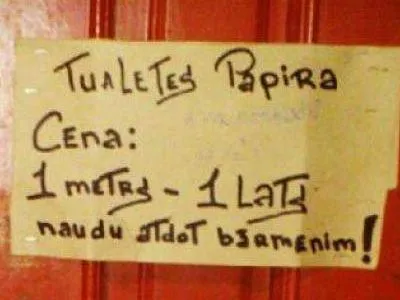 Tualetes Papira
Cena:
1 metrs - 1 Lats
naudu atdot bārmenim!